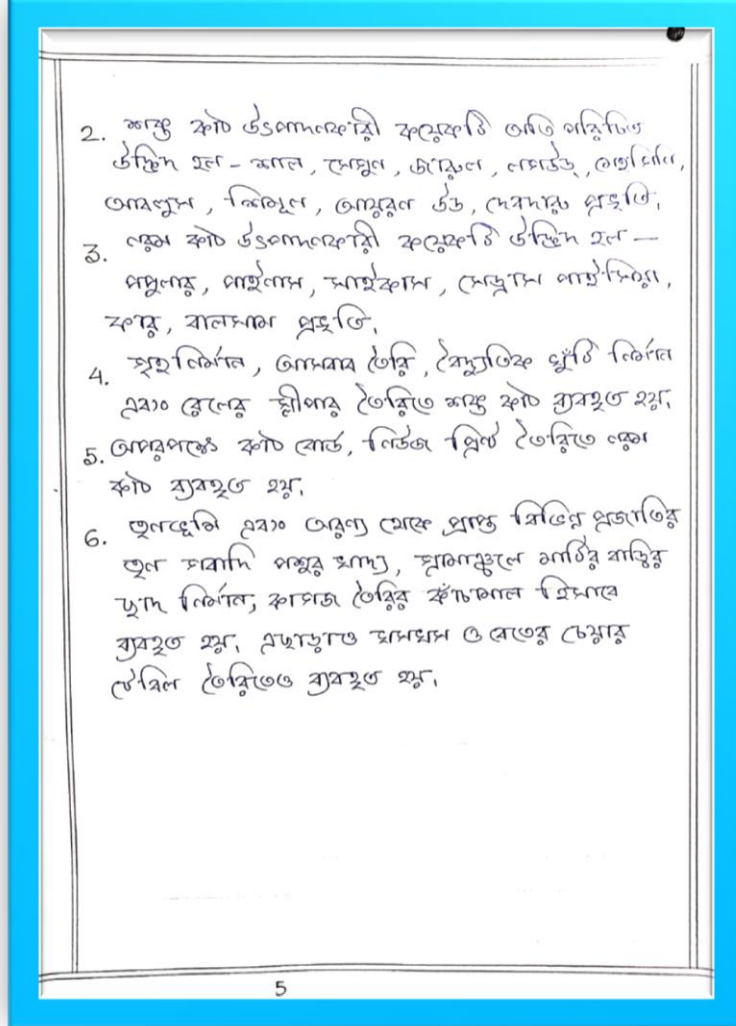 2. শক্ত কাঠ উৎপাদনকারী কয়েকটি অতি পরিচিত
উদ্ভিদ হল - শাল, সেগুন, জারুল, লগউড,
আবলুস, শিমূল, আয়রণ উড, দেবদারু প্রভৃতি।
3. নরম কাঠ উৎপাদনকারী কয়েকটি উদ্ভিদ হল —
পপুলার, পাইনাস, সাইকাস, সেড্রাস পাইসিয়া,
ফার, বালসাম প্রভৃতি।
4. গৃহনির্মান, আসবাব তৈরি, বৈদ্যুতিক খুঁটি নির্মান
এবং রেলের স্লীপার তৈরিতে শক্ত কাঠ ব্যবহৃত হয়।
5. অপরপক্ষে কাঠ বোর্ড, নিউজ প্রিন্ট তৈরিতে নরম
কাঠ ব্যবহৃত হয়।
6. তৃনভূমি এবং অরণ্য থেকে প্রাপ্ত বিভিন্ন প্রজাতির
তৃন গবাদি পশুর খাদ্য, গ্রামাঞ্চলে মাটির বাড়ির
ছাদ নির্মান, কাগজ তৈরির কাঁচামাল হিসাবে
ব্যবহৃত হয়। এছাড়াও খসখস ও বেতের চেয়ার
টেবিল তৈরিতেও ব্যবহৃত হয়।
5